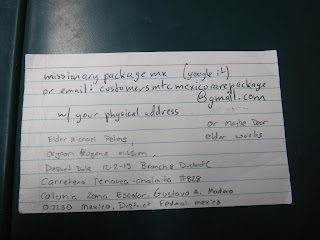 missionary package mx (google it)
or email: customersmtcmexicocarepackage
@gmail.com
w/ your physical address
or Maybe Dear
elder works
Elder Michael
Oregon Eugene mission,
Depart Date 12-2-15 Branch 8 District C
Carretera Tenayuca-chalmita #828
Colonia Zona Escolar, Gustavo A. Madero
07230 Mexico, District Federal mexico